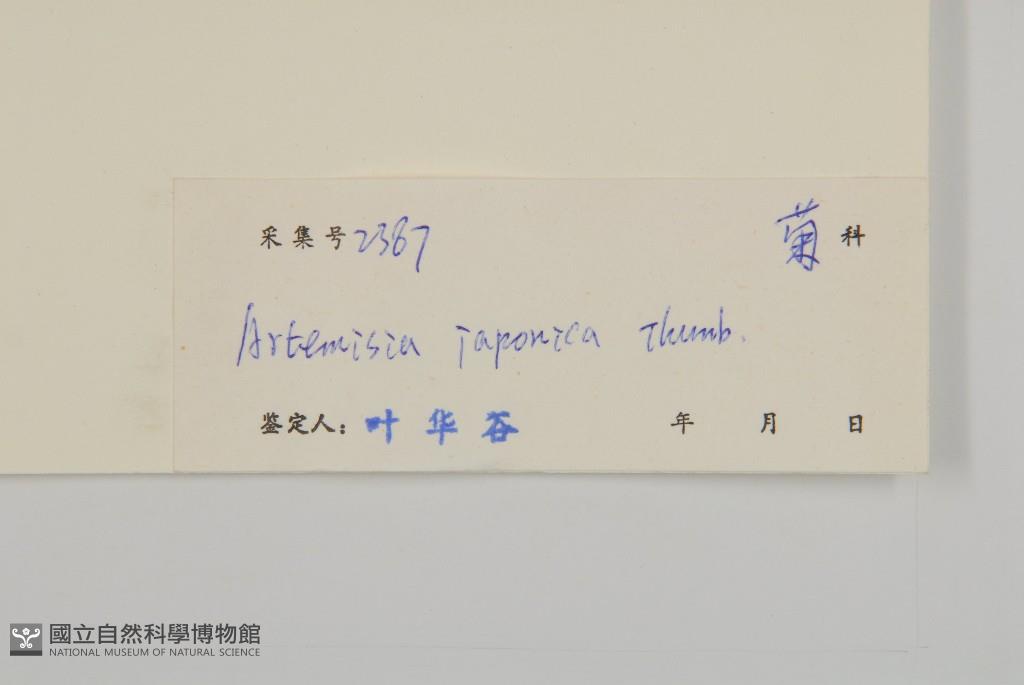 采集号 2387 菊 科
Artemisia japonica Thunb.
鉴定人: 叶华谷 年 月 日
國立自然科學博物館
NATIONAL MUSEUM OF NATURAL SCIENCE